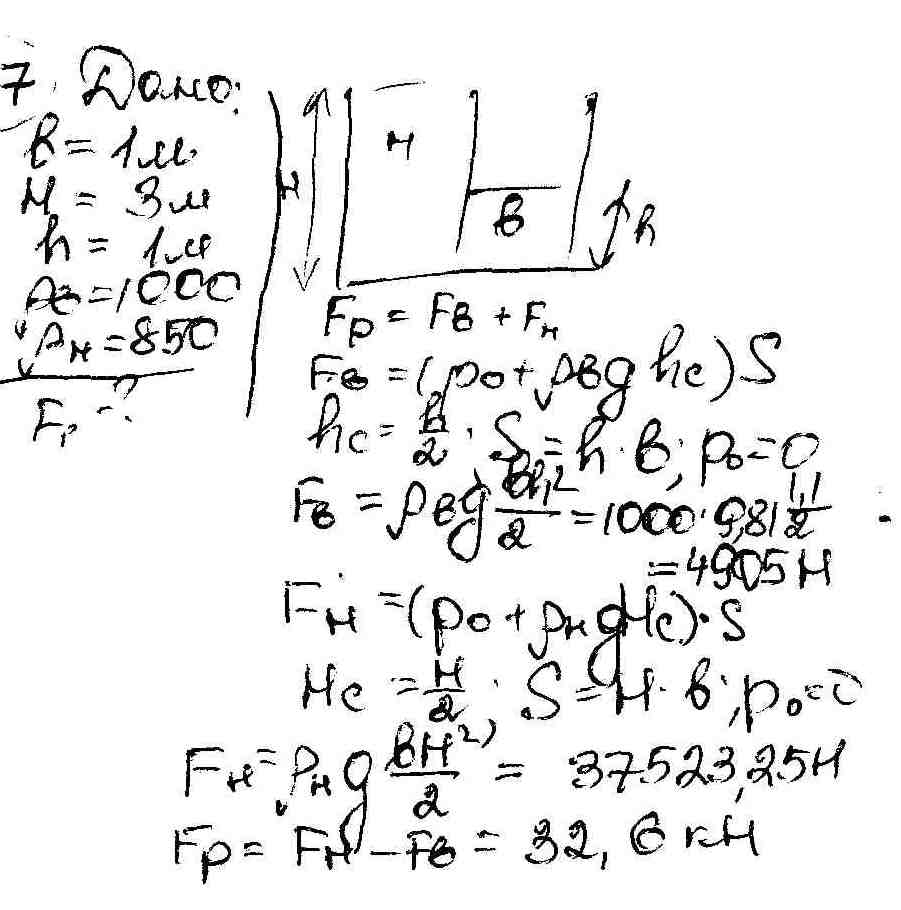 7. Дано:
в = 1м
H = 3м
h = 1м
ρв = 1000
ρн = 850
Fр - ?
H
н
в
h
Fр = Fв + Fн
Fв = (p₀ + ρвghc)S
hc = h/2; S = h·в; p₀ = 0
Fв = ρвg вh²/2 = 1000·9,81 1,1/2
= 4905 Н
Fн = (p₀ + ρнgHc)·S
Hc = H/2; S = H·в; p₀ = 0
Fн = ρнg вH²/2 = 37523,25Н
Fр = Fн - Fв = 32,6 кН